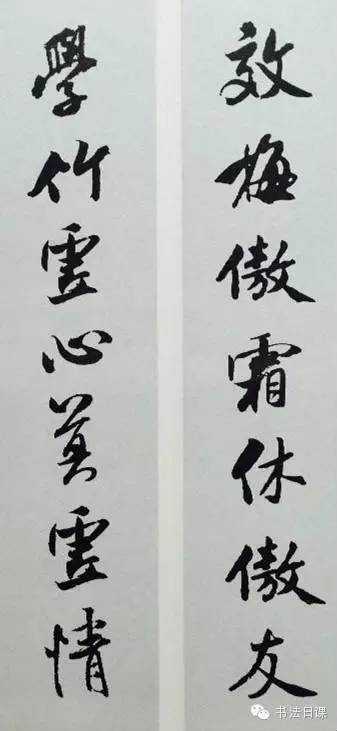 效梅傲霜休傲友
學竹虚心莫虚情
书法日课